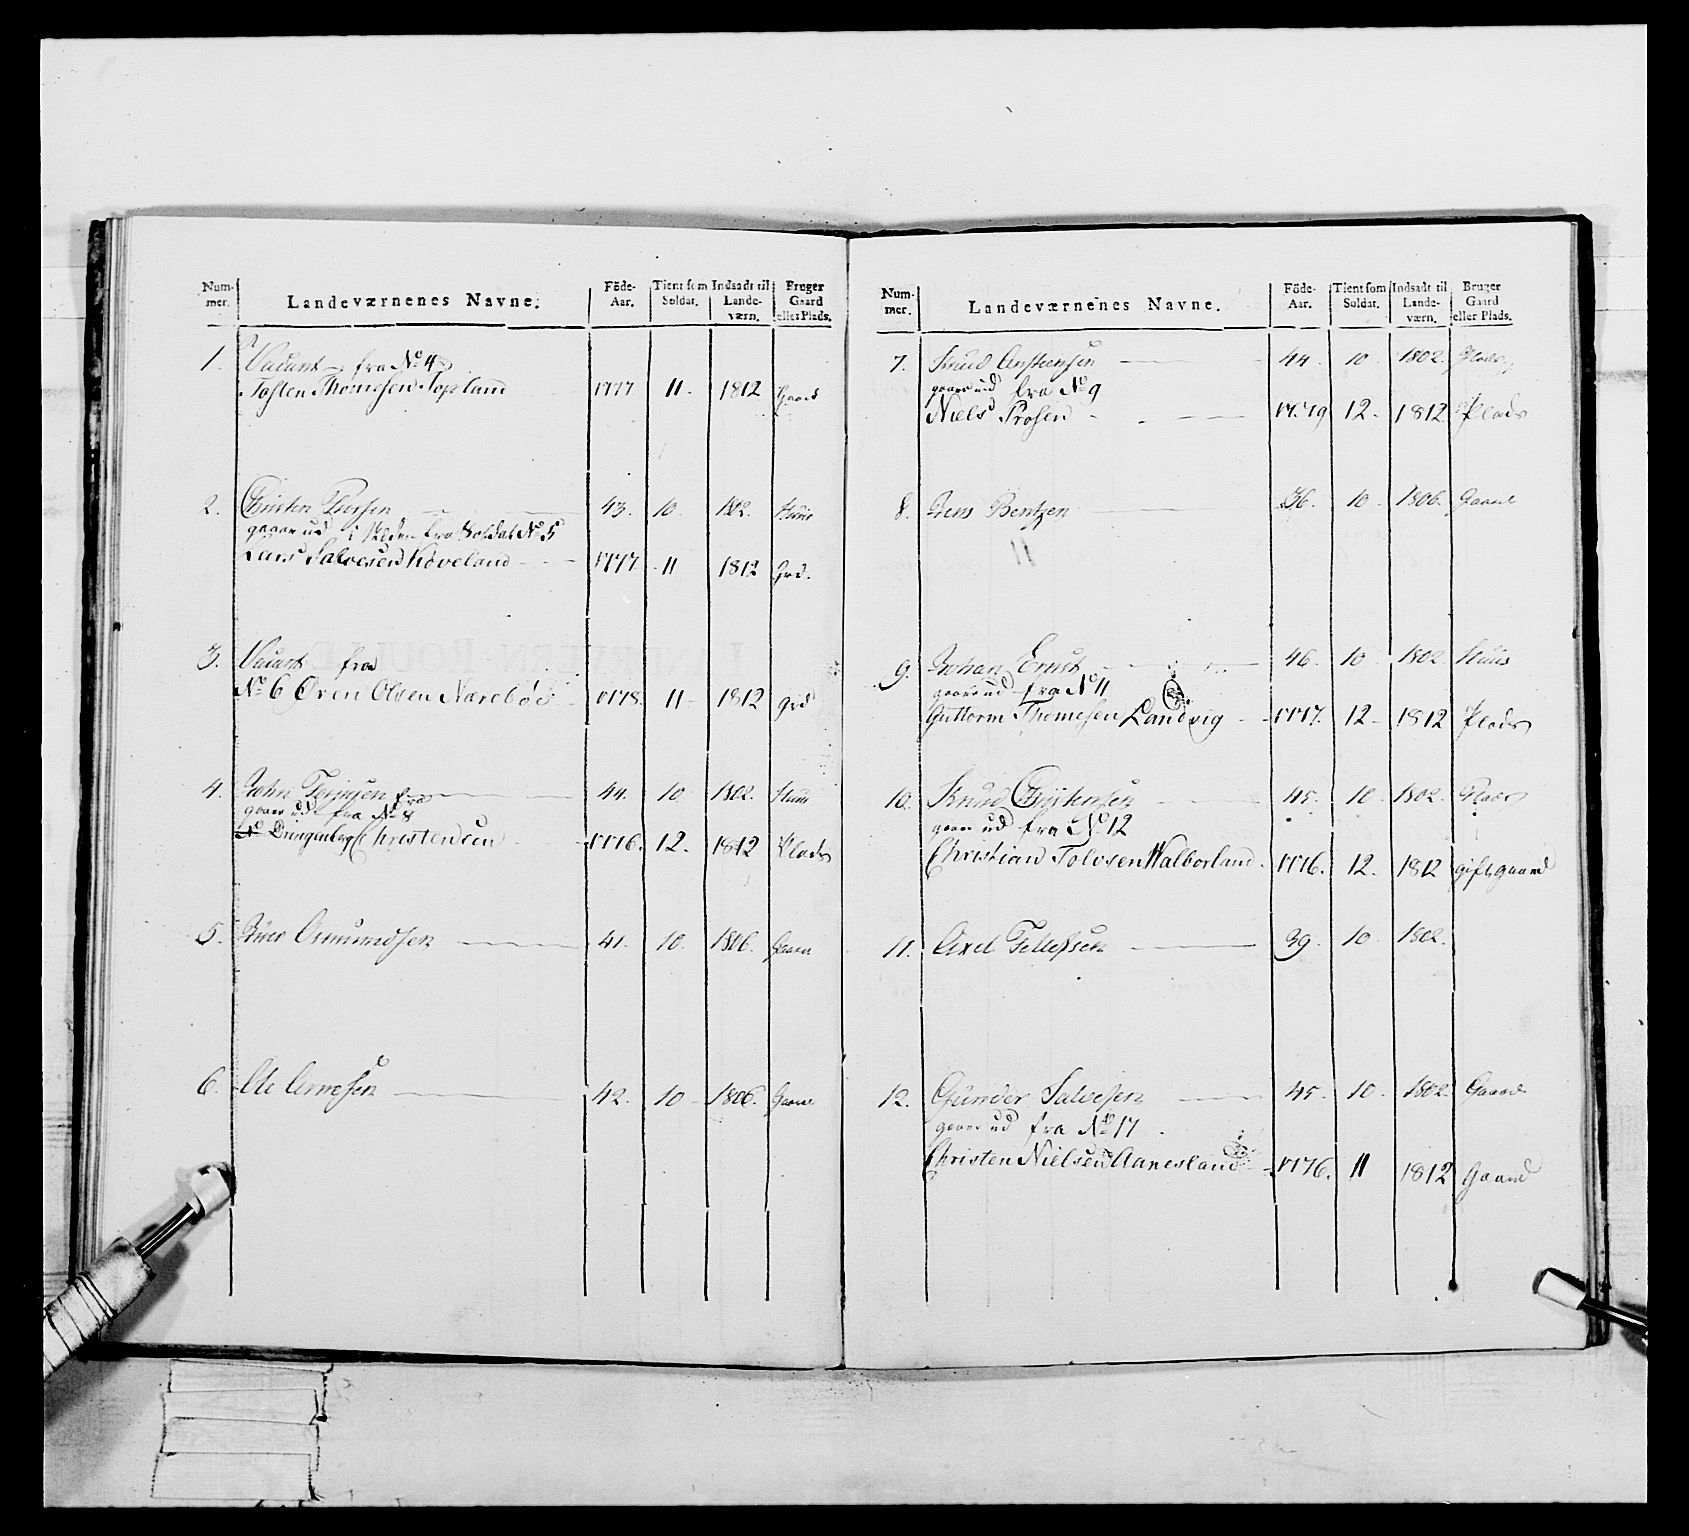 Num- mer. Landeværnenes Navne. Föde- Aar. Tient som Soldat. Indsadt til Lande- værn. Bruger Gaard eller Plads.
1. Vacant fra No 4
Tosten Thomesen Topland 1777 11 1812 Gaard
2. Christen 43. 10 1802. Huus
gaaer ud i Steden fra Soldat No 5
Lars Salvesen Koveland 1777 11 1812 Grd.
3. Vacant fra
No 6 Oven Olsen Narebøe 1778. 11 1812 Grd
4. John Terjusen fra 44. 10 1802. Huus
gaaer ud fra No 8
Christensen 1776. 12. 1812 Plads
5. Osmundsen 41. 10. 1806. Gaard
6. Ole Arnesen 42. 10 1806. Gaard
Num- mer. Landeværnenes Navne. Föde- Aar. Tient som Soldat. Indsadt til Lande- værn. Bruger Gaard eller Plads.
7. Knud Anstensen 44. 10 1802. Plads
gaaer ud fra No 9
Niels 1779 12. 1812 Plads
8. Jens Bentzen 36. 10 1806. Gaard
9. Johan Ernst 46. 10 1802 Huus
gaaer ud fra No 11
Guttorm Thomesen Landvig 1777. 12 1812 Plads
10. Knud Christensen 45. 10 1802. Plads
gaaer ud fra No 12
Christian Tolvsen Walborland 1776. 12. 1812 gift gaard
11. Axel Tellefsen 39. 10 1802.
12. Gunder Salvesen 45. 10 1802. Gaard
gaaer ud fra No 17
Christen Nielsen Aanesland 1776. 11 1812 Gaard